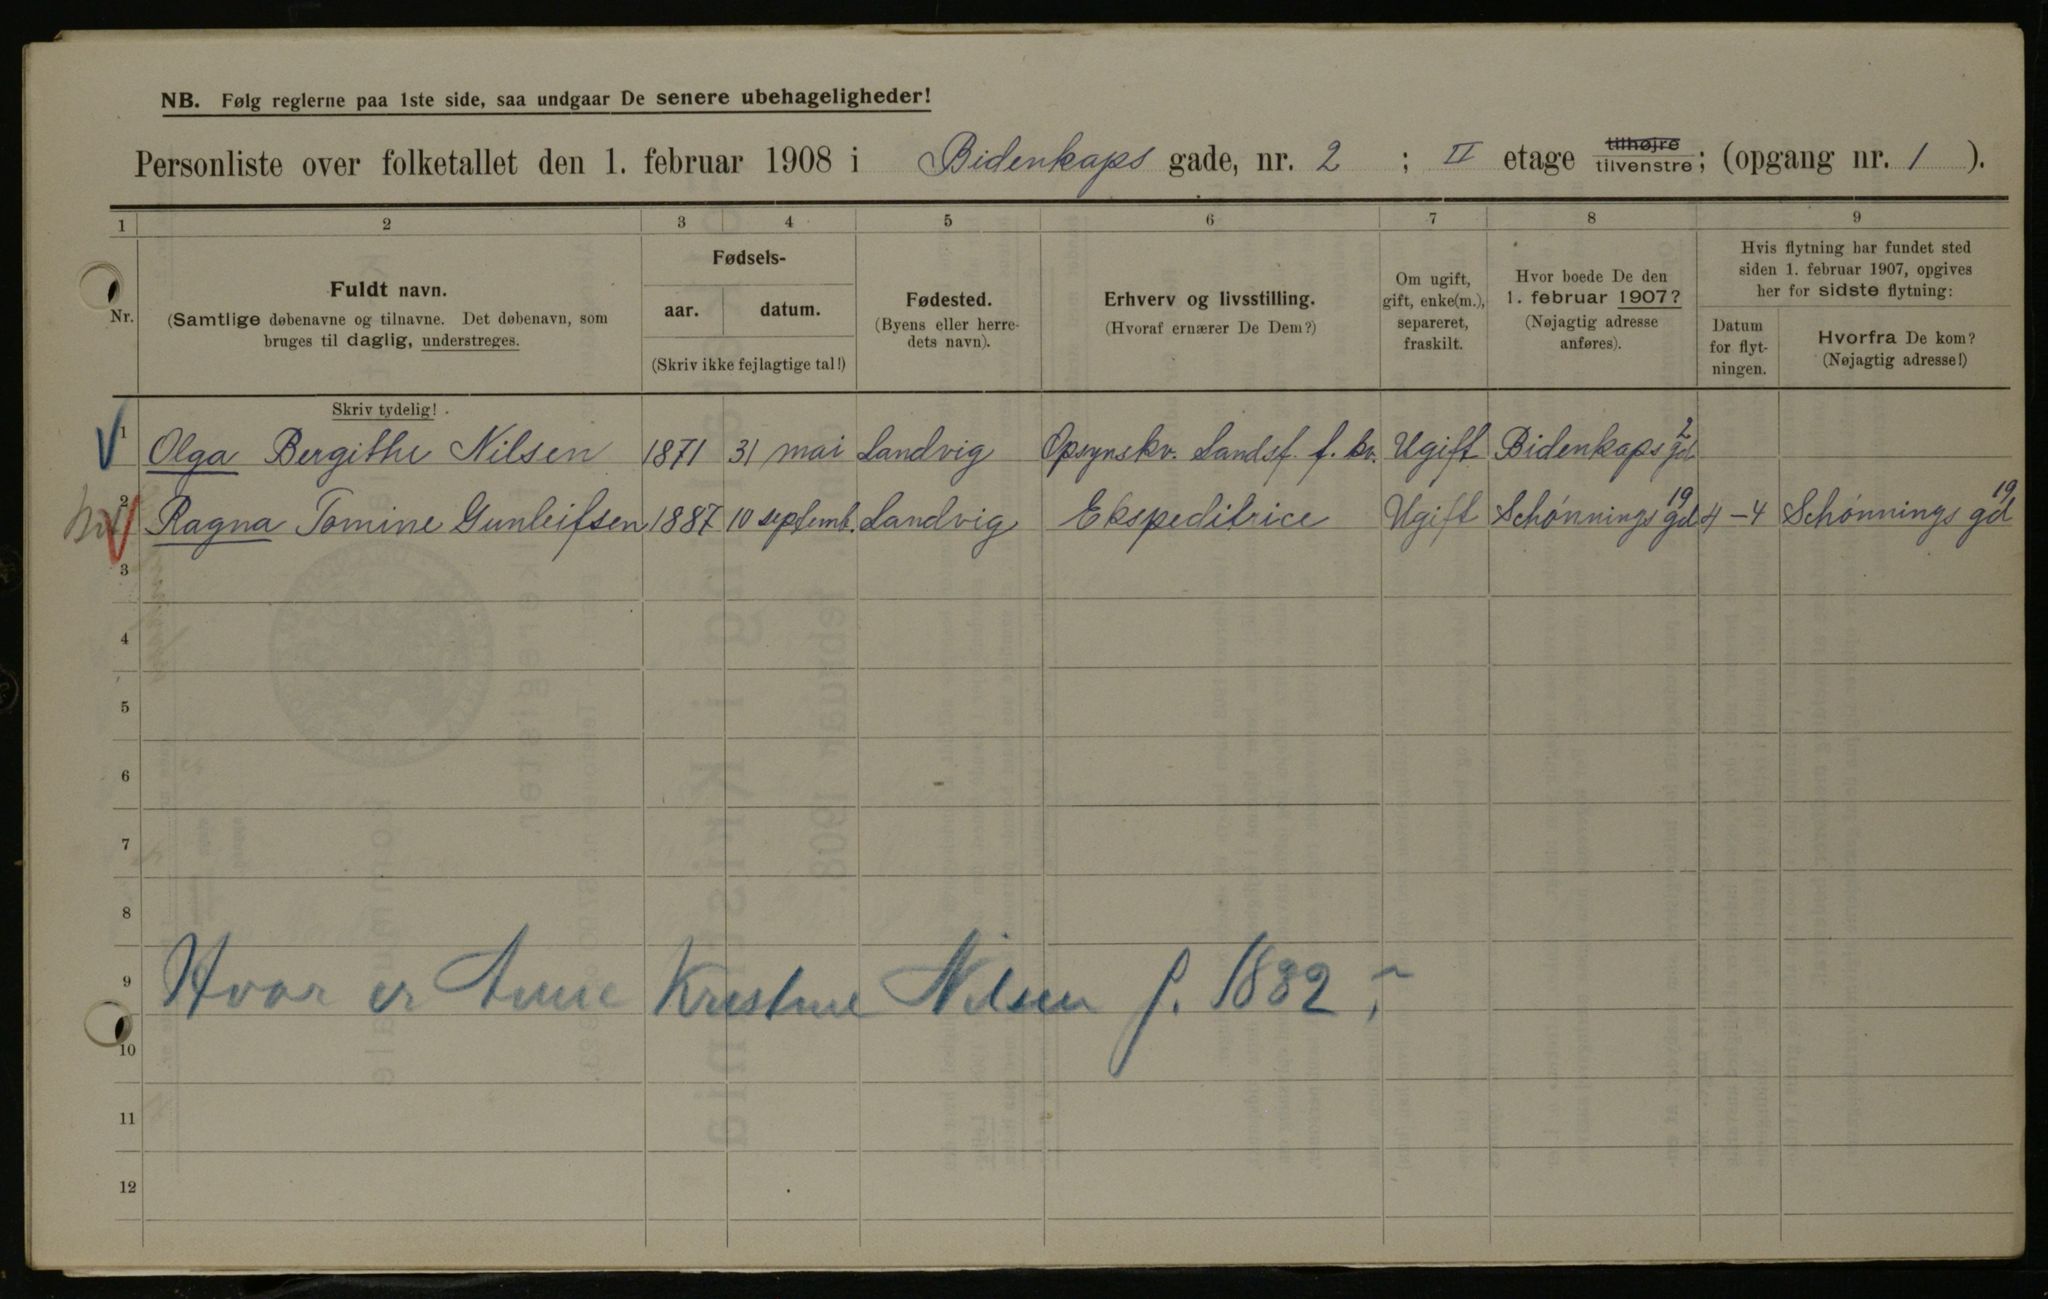 NB. Følg reglerne paa 1ste side, saa undgaar De senere ubehageligheder!
Personliste over folketallet den 1. februar 1908 i Bidenkaps gade, nr. 2 ; II etage tilhøjre tilvenstre; (opgang nr. 1 ).
1 2 3 4 5 6 7 8 9
Nr.
Fuldt navn.
(Samtlige døbenavne og tilnavne. Det døbenavn, som
bruges til daglig, understreges.
Fødsels-
aar. datum.
(Skriv ikke fejlagtige tal!)
Fødested.
(Byens eller herre-
dets navn).
Erhverv og livsstilling.
(Hvoraf ernærer De Dem?)
Om ugift,
gift, enke(m.),
separeret,
fraskilt.
Hvor boede De den
1. februar 1907?
(Nøjagtig adresse
anføres).
Hvis flytning har fundet sted
siden 1. februar 1907, opgives
her for sidste flytning:
Datum
for flyt-
ningen.
Hvorfra De kom?
(Nøjagtig adresse!)
Skriv tydelig!
1 Olga Bergithe Nilsen 1871 31 mai Landvig Opsynskv. Landsf. f. kv. Ugift Bidenkaps gd 2
2 Ragna Tomine Gunleifsen 1887 10 septemb. Landvig Ekspeditrice Ugift Schønnings gd 19 4-4 Schønnings gd 19
3
4
5
6
7
8
9 Hvor er Anne Kristine Nilsen f. 1882?
10
11
12